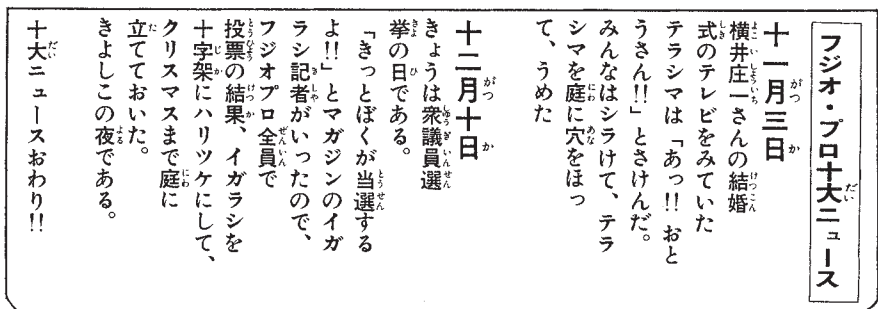 フジオ・プロ十大ニュース
十一月三日
横井庄一さんの結婚
式のテレビをみていた
テラシマは「あっ!!おと
うさん!!」とさけんだ。
みんなはシラけて、テラ
シマを庭に穴をほっ
て、うめた
十二月十日
きょうは衆議員選
挙の日である。
「きっとぼくが当選する
よ!!」とマガジンのイガ
ラシ記者がいったので、
フジオプロ全員で
投票の結果、イガラシを
十字架にハリツケにして、
クリスマスまで庭に
立てておいた。
きよしこの夜である。
十大ニュースおわり!!